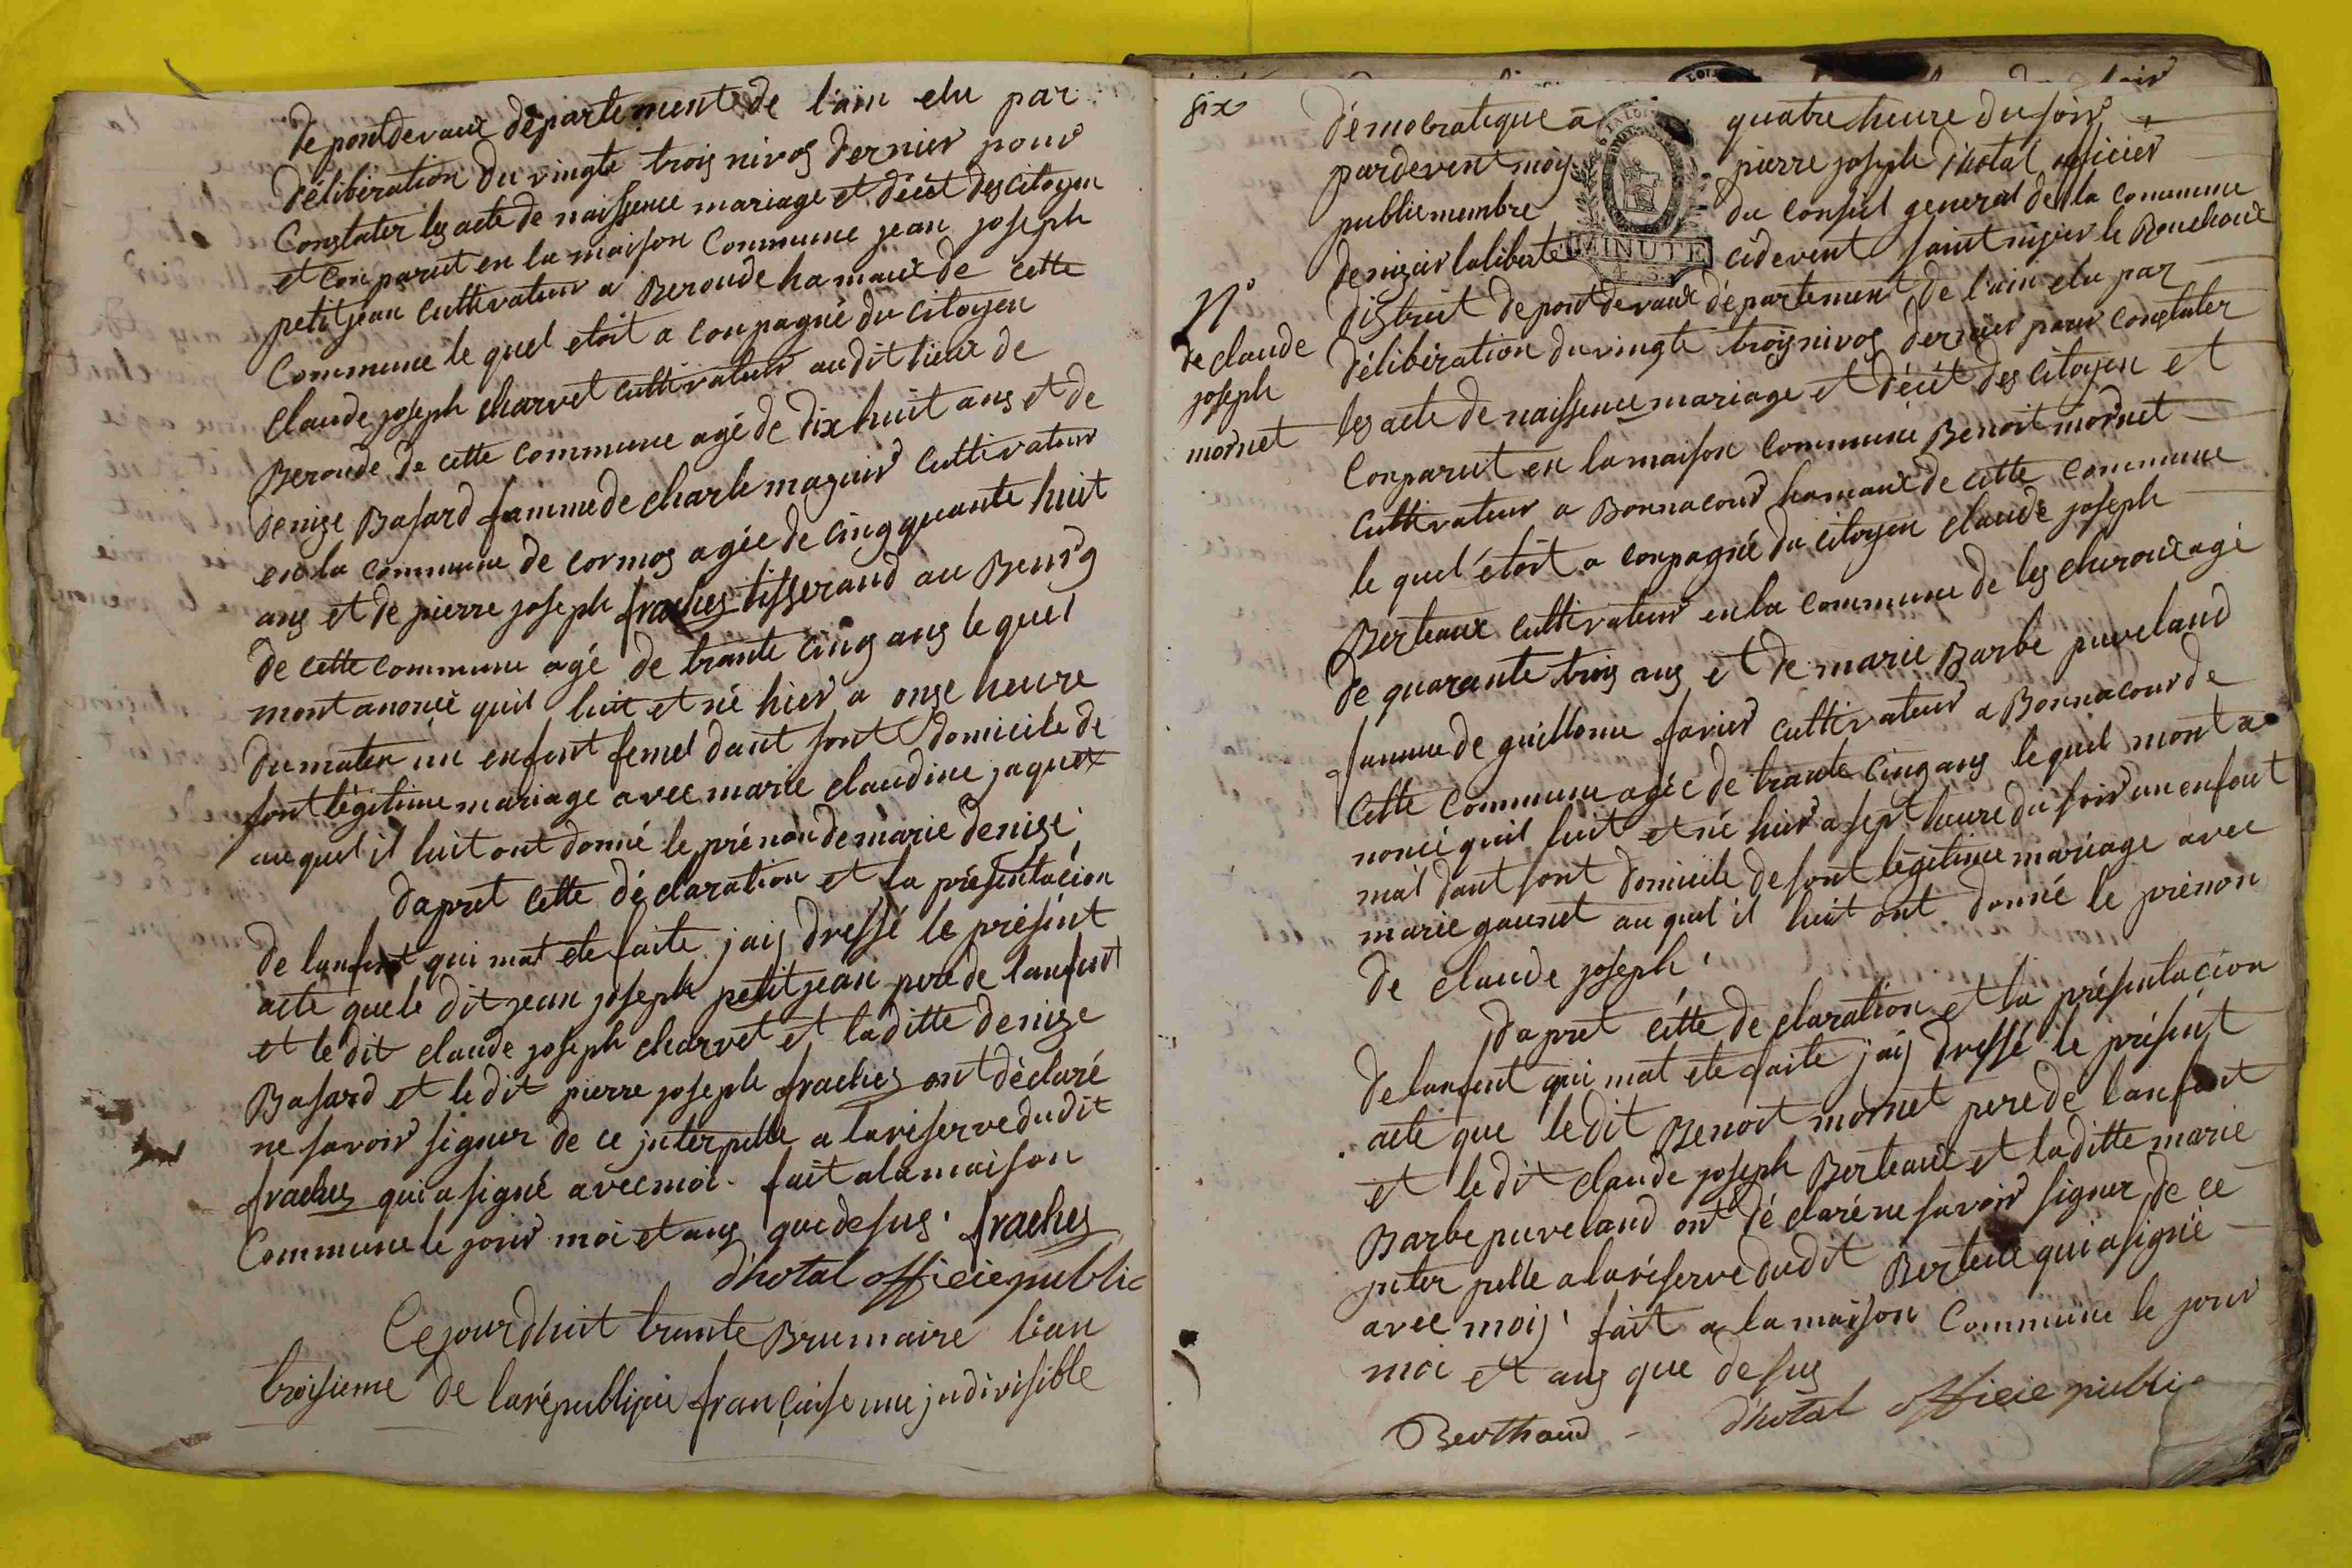 de pontdevaux département de l'ain elu par
délibération du vingte trois nivos dernier pour
Constater les acte de naissence mariage et décèt des citoyen
et conparut en la maison Commune jean joseph
petitjean cultivateur a Beroude hamaux de cette
Commune le quel etoit a conpagné du citoyen
Claude joseph charvet cultivateur audit lieux de
Beroude de cette commune agé de dix huit ans et de
denise Basard famme de charle maguin cultivateur
en la commune de cormos agée de cinqquante huit
ans et de pierre joseph fraches tisserand au Bourg
de cette commune agé de trante cinq ans lequel
mont anoncé quil luit et né hier a onse heure
du maten un enfent femel dant sont domicile de
sont légitime mariage avec marie claudine jaquet
auquel il luit ont donné le prénon de marie denise
dapret cette déclaration et la présentacion
de lanfent qui mat ete faite jais dressé le présint
acte que le dit jean joseph petitjean pere de lanfent
et le dit claude joseph charvet et laditte denise
Basard et le dit pierre joseph fraches ont déclaré
ne savoir signer de ce interpelle a la réserve dudit
fraches qui a signé avec moi fait a la maison
Commune le jour moi et ans que desus fraches
d'hotal officie public
Cejourdhuit trante Brumaire l'an
troisieme de la république française une indivisible
six
démocratique a quatre heure du soir
pardevent moy pierre joseph d'hotal officier
public membre du conseil general de la commune
de nizier la liberte cidevent saint nizier le Bouchoux
MINUTE
district de pont devaux département de l'ain elu par
N°
de claude
joseph
mornet
délibération du vingte trois nivos dernier pour constater
les acte de naissence mariage et décèt des citoyen et
Conparut en la maison commune Benoit mornet
cultivateur a Bonnacour hamaux de cette commune
le quel étoit a conpagné du citoyen claude joseph
Berteaux cultivateur en la commune de les cheroux agé
de quarante trois ans et de marie Barbe puveland
famme de guillome favier cultivateur a Bonnacour de
cette commune agée de trante cinq ans le quel mont a
noncé quil luit et né hier a sept heure du soir un enfent
mâl dant sont domicile de sont légitime mariage avec
marie gaunet au quel il luit ont donné le prénon
de claude joseph
dapret cétte déclaration et la présentacion
de lanfent qui mat ete faite jais dressé le présint
acte que le dit Benoit mornet pere de lanfent
et le dit claude joseph Berteaux et laditte marie
Barbe puveland ont déclaré ne savoir signer de ce
inter pelle a la réserve dudit Berteux qui a signé
avec moy fait a la maison Commune le jour
moi et ans que desus
Berthaud d'hotal officie public